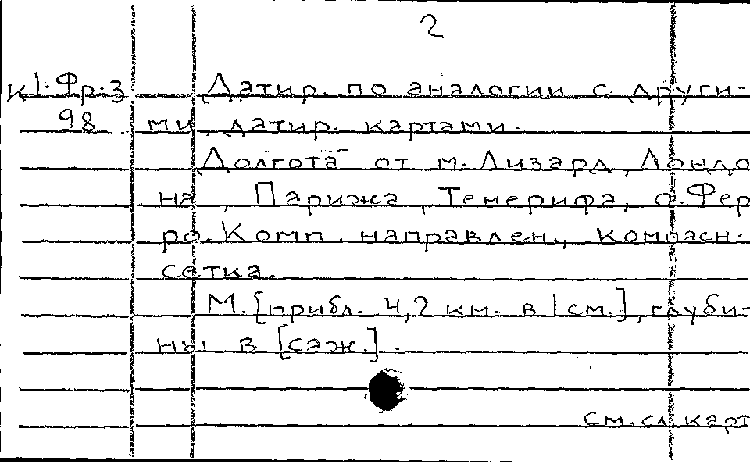 2
К1.Фр.3 Датир. по аналогии с други-
98 ми датир. картами.
Долгота от м. Лизард, Лондо
на, Парижа, Тенерифа, о. Фер
ро. Комп. направлен., компасн.
сетка.
М. [прибл. 4,2 км. в 1 см.], глуби-
ны в [саж.].
см. сл. карт